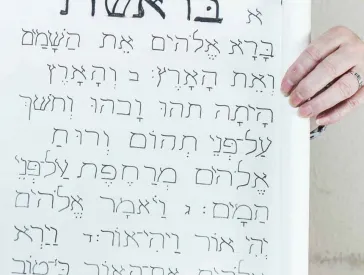 א בראשת
בָּרָא אֱלֹהִים אֵת הַשָּׁמַם
וְאֵת הָאָרֶץ: ב וְהָאָרֶץ
הָיְתָה תהוּ וָבהוּ וְחשֶׁךְ
עַל־פְּנֵי תְהוֹם וְרוּחַ
אֱלֹהִים מְרַחֶפֶת עַל־פְּנֵי
הַמָּיִם: ג וַיֹּאמֶר אֱלֹהִים
יְהִי אוֹר וַיְהִי־אוֹר: ד וַיַּרְא
אֱלֹהִים אֶת־הָאוֹר כִּי־טוֹב